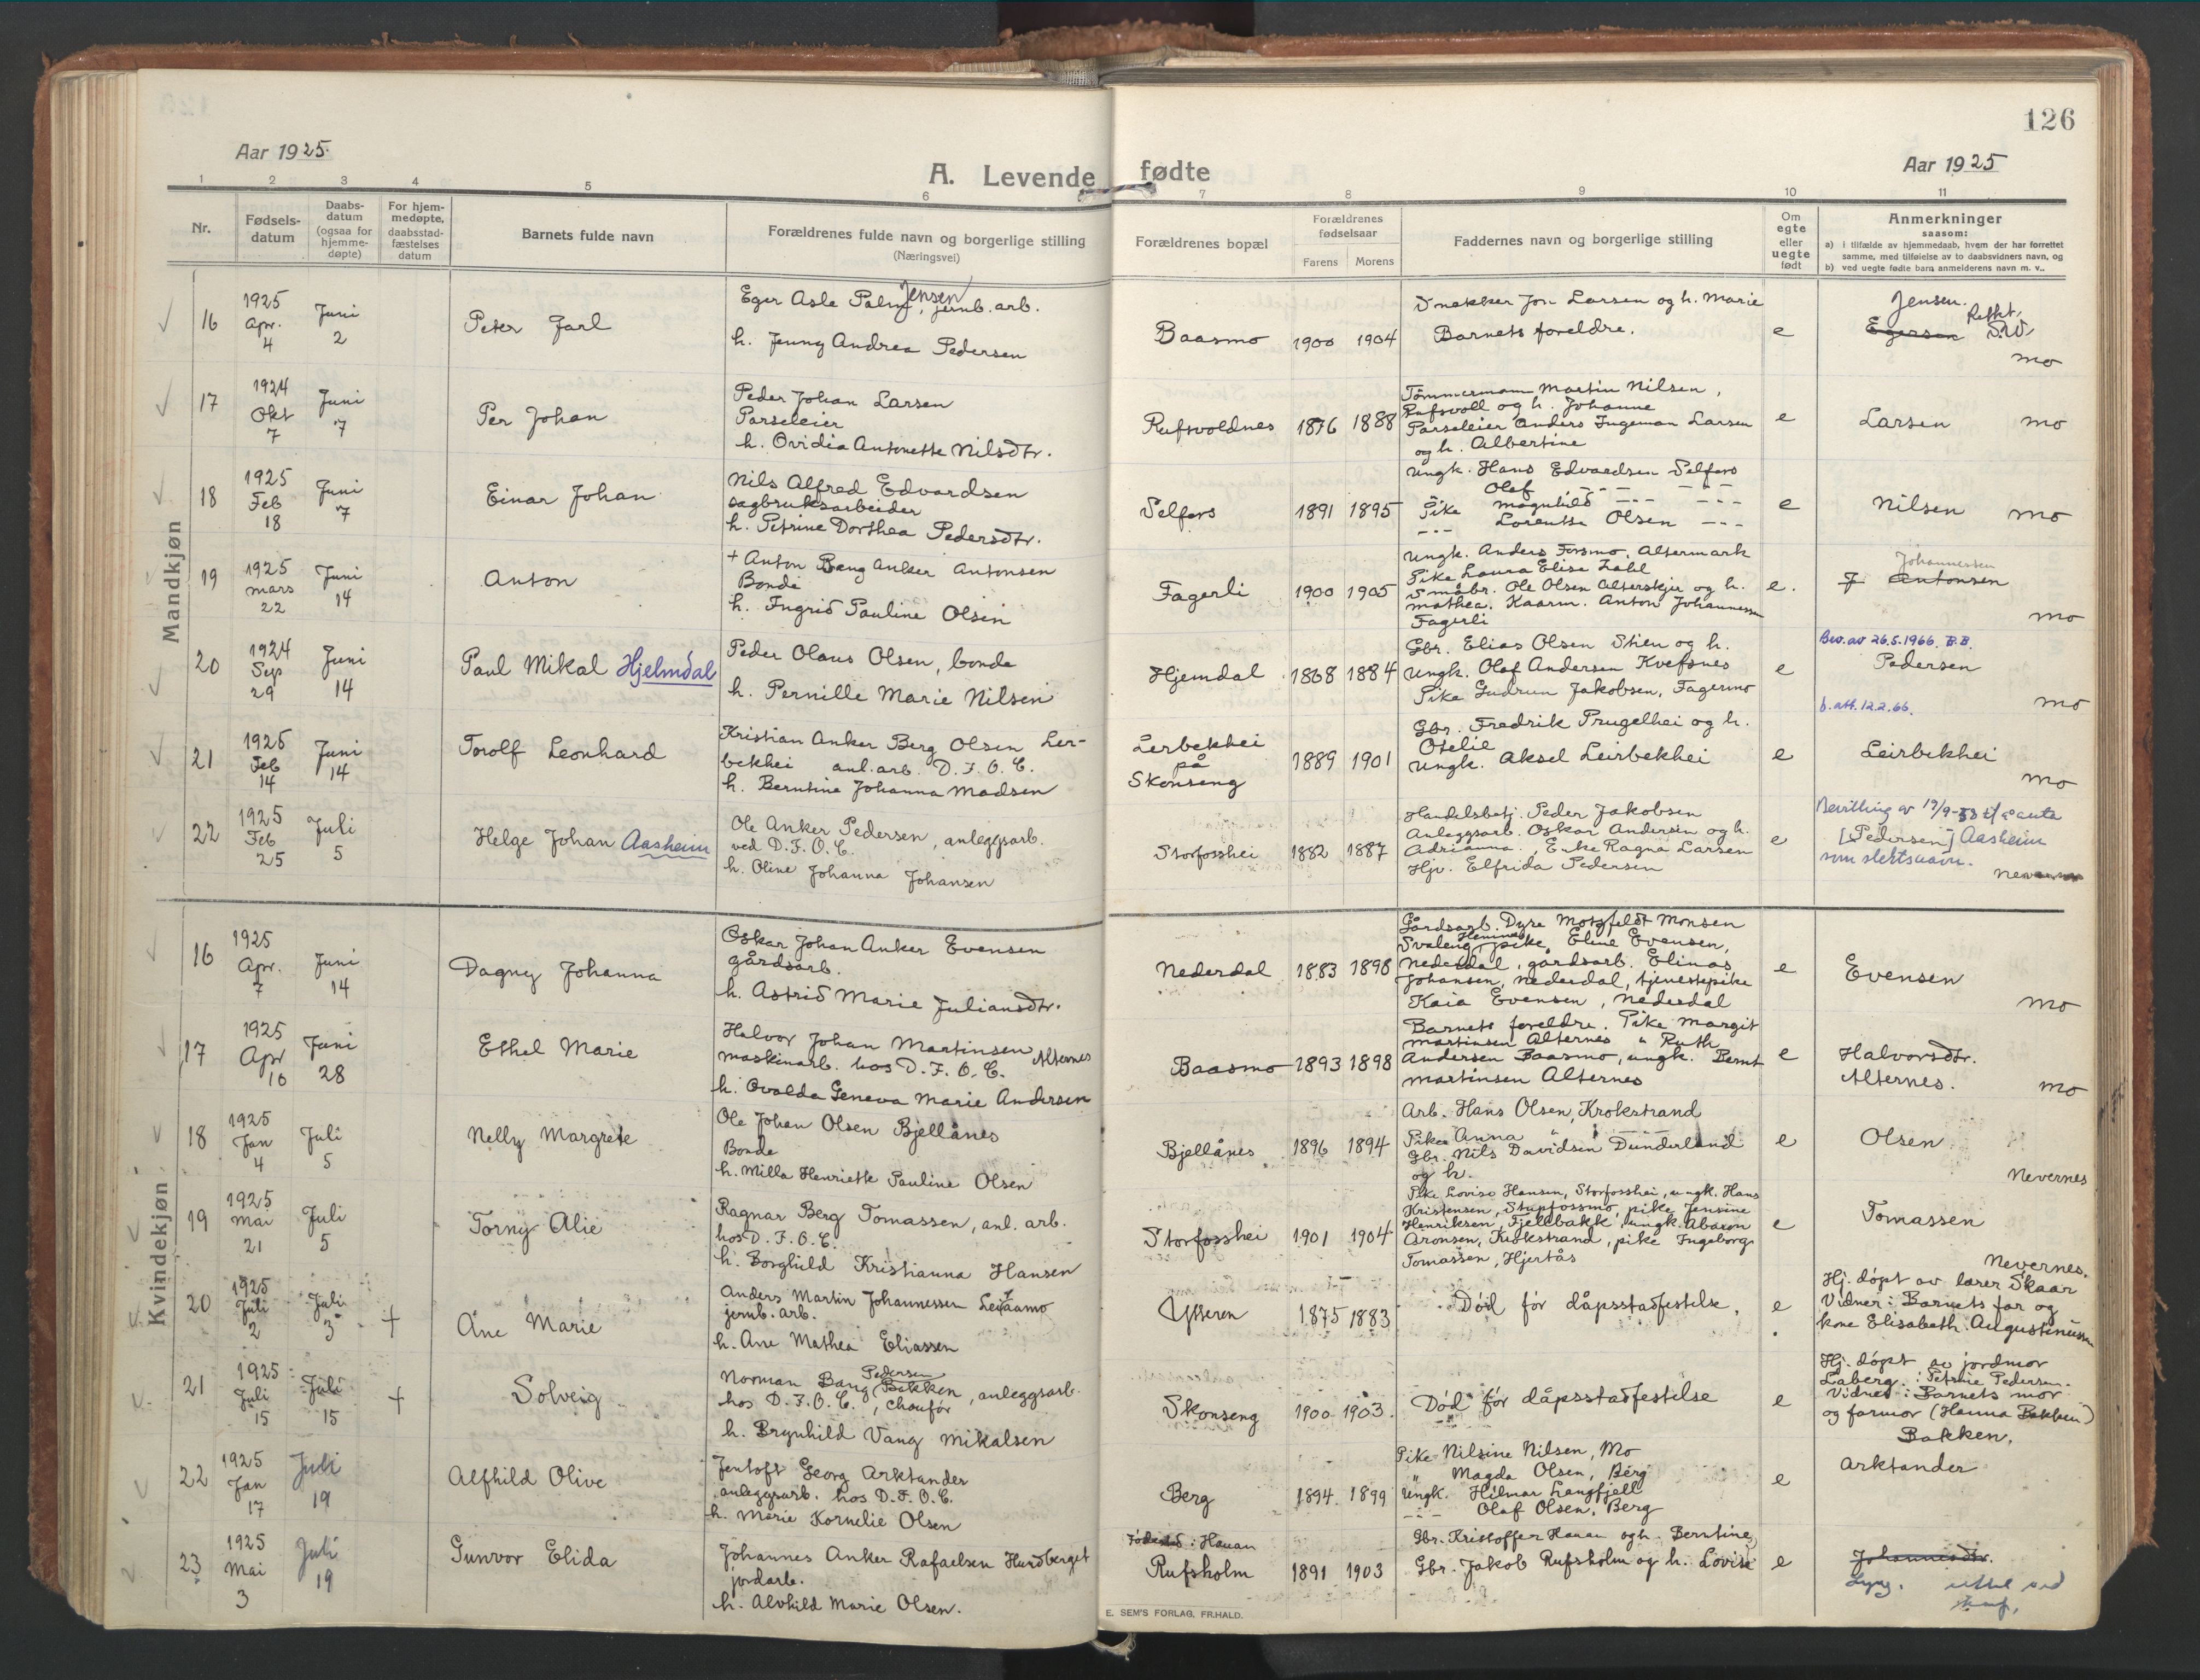 126
Aar 1925.
A. Levende fødte
Aar 1925
1 2 3 4 5 6 7 8 9 10 11
Nr.
Fødsels-
datum
Daabs-
datum
(ogsaa for
hjemme-
døpte)
For hjem-
medøpte,
daabsstad-
fæstelses
datum
Barnets fulde navn
Forældrenes fulde navn og borgerlige stilling
(Næringsvei)
Forældrenes bopæl
Forældrenes
fødselsaar
Farens Morens
Faddernes navn og borgerlige stilling
Om
egte
eller
uegte
født
Anmerkninger
saasom:
a) i tilfælde av hjemmedaab, hvem der har forrettet
samme, med tilføielse av to daabsvidners navn, og
b) ved uegte fødte barn anmelderens navn m. v..
Mandkjøn
16
1925
Apr.
4
Juni
2
Peter Jarl
Jensen
Eger Asle Palm, jernb. arb.
h. Jenny Andrea Pedersen
Baasmo
1900 1904
Snekker Jon Larsen og h. Marie
Barnets foreldre.
e
Jensen.
Rettet,
Egersen S.W.
Mo
17
1924
Okt
7
Juni
7
Per Johan
Peder Johan Larsen
Parseleier
h. Ovidia Antonette Nilsdtr.
Rufsvoldnes
1876 1888
Tømmermann Martin Nilsen,
Rufsvoll og h. Johanne
Parseleier Anders Ingeman Larsen
og h. Albertine
e
Larsen Mo
18
1925
Feb
18
Juni
7
Einar Johan
Nils Alfred Edvardsen
sagbruksarbeider
h. Petrine Dorthea Pedersdtr.
Selfors
1891 1895
Ungk. Hans Edvardsen Selfors
Olaf --- ---
Pike Magnhild --- ---
--- Lorentse Olsen ---
e
Nilsen Mo
19
1925
Mars
22
Juni
14
Anton
+ Anton Bang Anker Antonsen
Bonde
h. Ingrid Pauline Olsen
Fagerli
1900 1905
Ungk. Anders Forsmo, Altermark
Pike Laura Elise Zahl
Småbr. Ole Olsen Alterskjer og h.
Mathea. Kaarm. Anton Johannessen
Fagerli
e.
Johannessen
J Antonsen
Mo
20
1924
Sep
29
Juni
14
Paul Mikal Hjelmdal
Peder Olaus Olsen, bonde
h. Pernille Marie Nilsen
Hjemdal
1868 1884
Gbr. Elias Olsen Stien og h.
Ungk. Olaf Andersen Kvefsnes
Pike Gudrun Jakobsen, Fagermo
e
Bev. av 26.5.1966. B.B.
Pedersen
f. att. 12.2.66.
Mo
21
1925
Feb
14
Juni
14
Torolf Leonhard
Kristian Anker Berg Olsen Ler-
bekhei anl. arb. D. F. O. C.
h. Berntine Johanna Madsen
Lerbekhei
på
Skonseng
1889 1901
Gbr. Fredrik Prugelhei og h.
Otelie
Ungk. Aksel Leirbekhei
e
Leirbekhei
Mo
22
1925
Feb
25
Juli
5
Helge Johan Aasheim
Ole Anker Pedersen, anleggsarb.
ved D. F. O. C.
h. Oline Johanna Johansen
Storfosshei
1882 1887
Handelsbetj. Peder Jakobsen
Anleggsarb. Oskar Andersen og h.
Adrianna, Enke Ragna Larsen
Hjv. Elfrida Pedersen
e
Bevilling av 19/9-53 t/ å anta
[Pedersen] Aasheim
som slektsnavn.
Nevernes
Kvindekjøn
16
1925
Apr.
7
Juni
14
Dagny Johanna
Oskar Johan Anker Evensen
gårdsarb.
h. Astrid Marie Juliansdtr.
Nederdal
1883 1898
Gårdsarb. Dyre Motzfeldt Monsen
Svaleng, pike Eline Evensen,
Nederdal, gårdsarb. Elinas
Johansen, Nederdal, tjenestepike
Kaia Evensen, Nederdal
e
Evensen
Mo
17
1925
Apr
16
Juni
28
Ethel Marie
Halvor Johan Martinsen
maskinarb. hos D. F. O. C. Alternes
h. Ovalda Geneva Marie Andersen
Baasmo
1893 1898
Barnets foreldre. Pike Margit
Martinsen Alternes " Ruth
Andersen Baasmo, ungk. Bernt
Martinsen Alternes
e
Halvorsdtr.
Alternes.
Mo
18
1925
Jan
4
Juli
5
Nelly Margrete
Ole Johan Olsen Bjellånes
Bonde
h. Milla Henriette Pauline Olsen
Bjellånes
1896 1894
Arb. Hans Olsen, Krokstrand
Pike Anna " ---
Gbr. Nils Davidsen Dunderland
og h.
e
Olsen
Nevernes
19
1925
Mai
21
Juli
5
Torny Alie
Ragnar Berg Tomassen, anl. arb.
hos D. F. O. C.
h. Borghild Kristianna Hansen
Storfosshei
1901 1904
Pike Lovise Hansen, Storfosshei, ungk. Hans
Kristensen, Stupfossmo, pike Jensine
Henriksen, Fjellbakk, ungk. Abaron
Aronsen, Krokstrand, pike Ingeborg
Tomassen, Hjertås
e
Tomassen
Nevernes.
20
1925
Juli
2
Juli
3
+
Ane Marie
Anders Martin Johannessen Leiraamo
jernb. arb.
h. Ane Mathea Eliassen
Ytteren
1875 1883
Død før dåpsstadfestelse.
e
Hj. døpt av lærer Skaar
Vidner: Barnets far og
kone Elisabeth Augustinussen
21
1925
Juli
15
Juli
15
+
Solveig
Pedersen
Norman Bang Bakken, anleggsarb.
hos D. F. O. C., chaufør
h. Brynhild Vang Mikalsen
Skonseng
1900 1903.
Død før dåpsstadfestelse
e
Hj. døpt av jordmor
Laberg: Petrine Pedersen.
Vidner: Barnets mor
og farmor (Hanna Bakken)
Bakken.
22
1925
Jan
17
Juli
19
Alfhild Olive
Jentoft Georg Arktander
anleggsarb. hos D. F. O. C.
h. Marie Kornelie Olsen
Berg
1894 1899
Pike Nilsine Nilsen, Mo
" Magda Olsen, Berg
Ungk. Hilmar Langfjell
--- Olaf Olsen, Berg
e
Arktander
23
1925
Mai
3
Juli
19
Gunvor Elida
Johannes Anker Rafaelsen Hundberget
jordarb.
h. Alvhild Marie Olsen.
Fødested: Hauan
Rufsholm
1891 1903
Gbr. Kristoffer Hauan og h. Berntine
Gbr. Jakob Rufsholm og h. Lovise
e
Johannesdtr.
E. SEM'S FORLAG, FR.HALD.